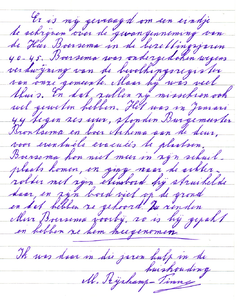 Er is mij gevraagd om een eindje
te schrijven over de gevangenneming van
de Heer Boersema in de bezettingsjaren
40-45. Boersema was ondergedoken wegens
verduistering van de bevolkingsregister
van onze gemeente. Maar hij was veel
thuis. En dat zullen zij misschien ook
wel geweten hebben. Het was in Januari
44 tegen zes uur, stonden Burgemeester
Brontsema en boer aan de deur,
voor eventuele evacués te plaatsen,
Boersema kon niet meer in zijn schuil
plaats komen, en ging naar de achter
zolder met zijn bij struikelde
daar, en zijn bord viel op de grond
en dat hebben ze gehoord. Ze vonden
Meer Boersema zo is hij gepakt
en hebben ze hem meegenomen
Ik was daar in die jaren hulp in de
huishouding
M.